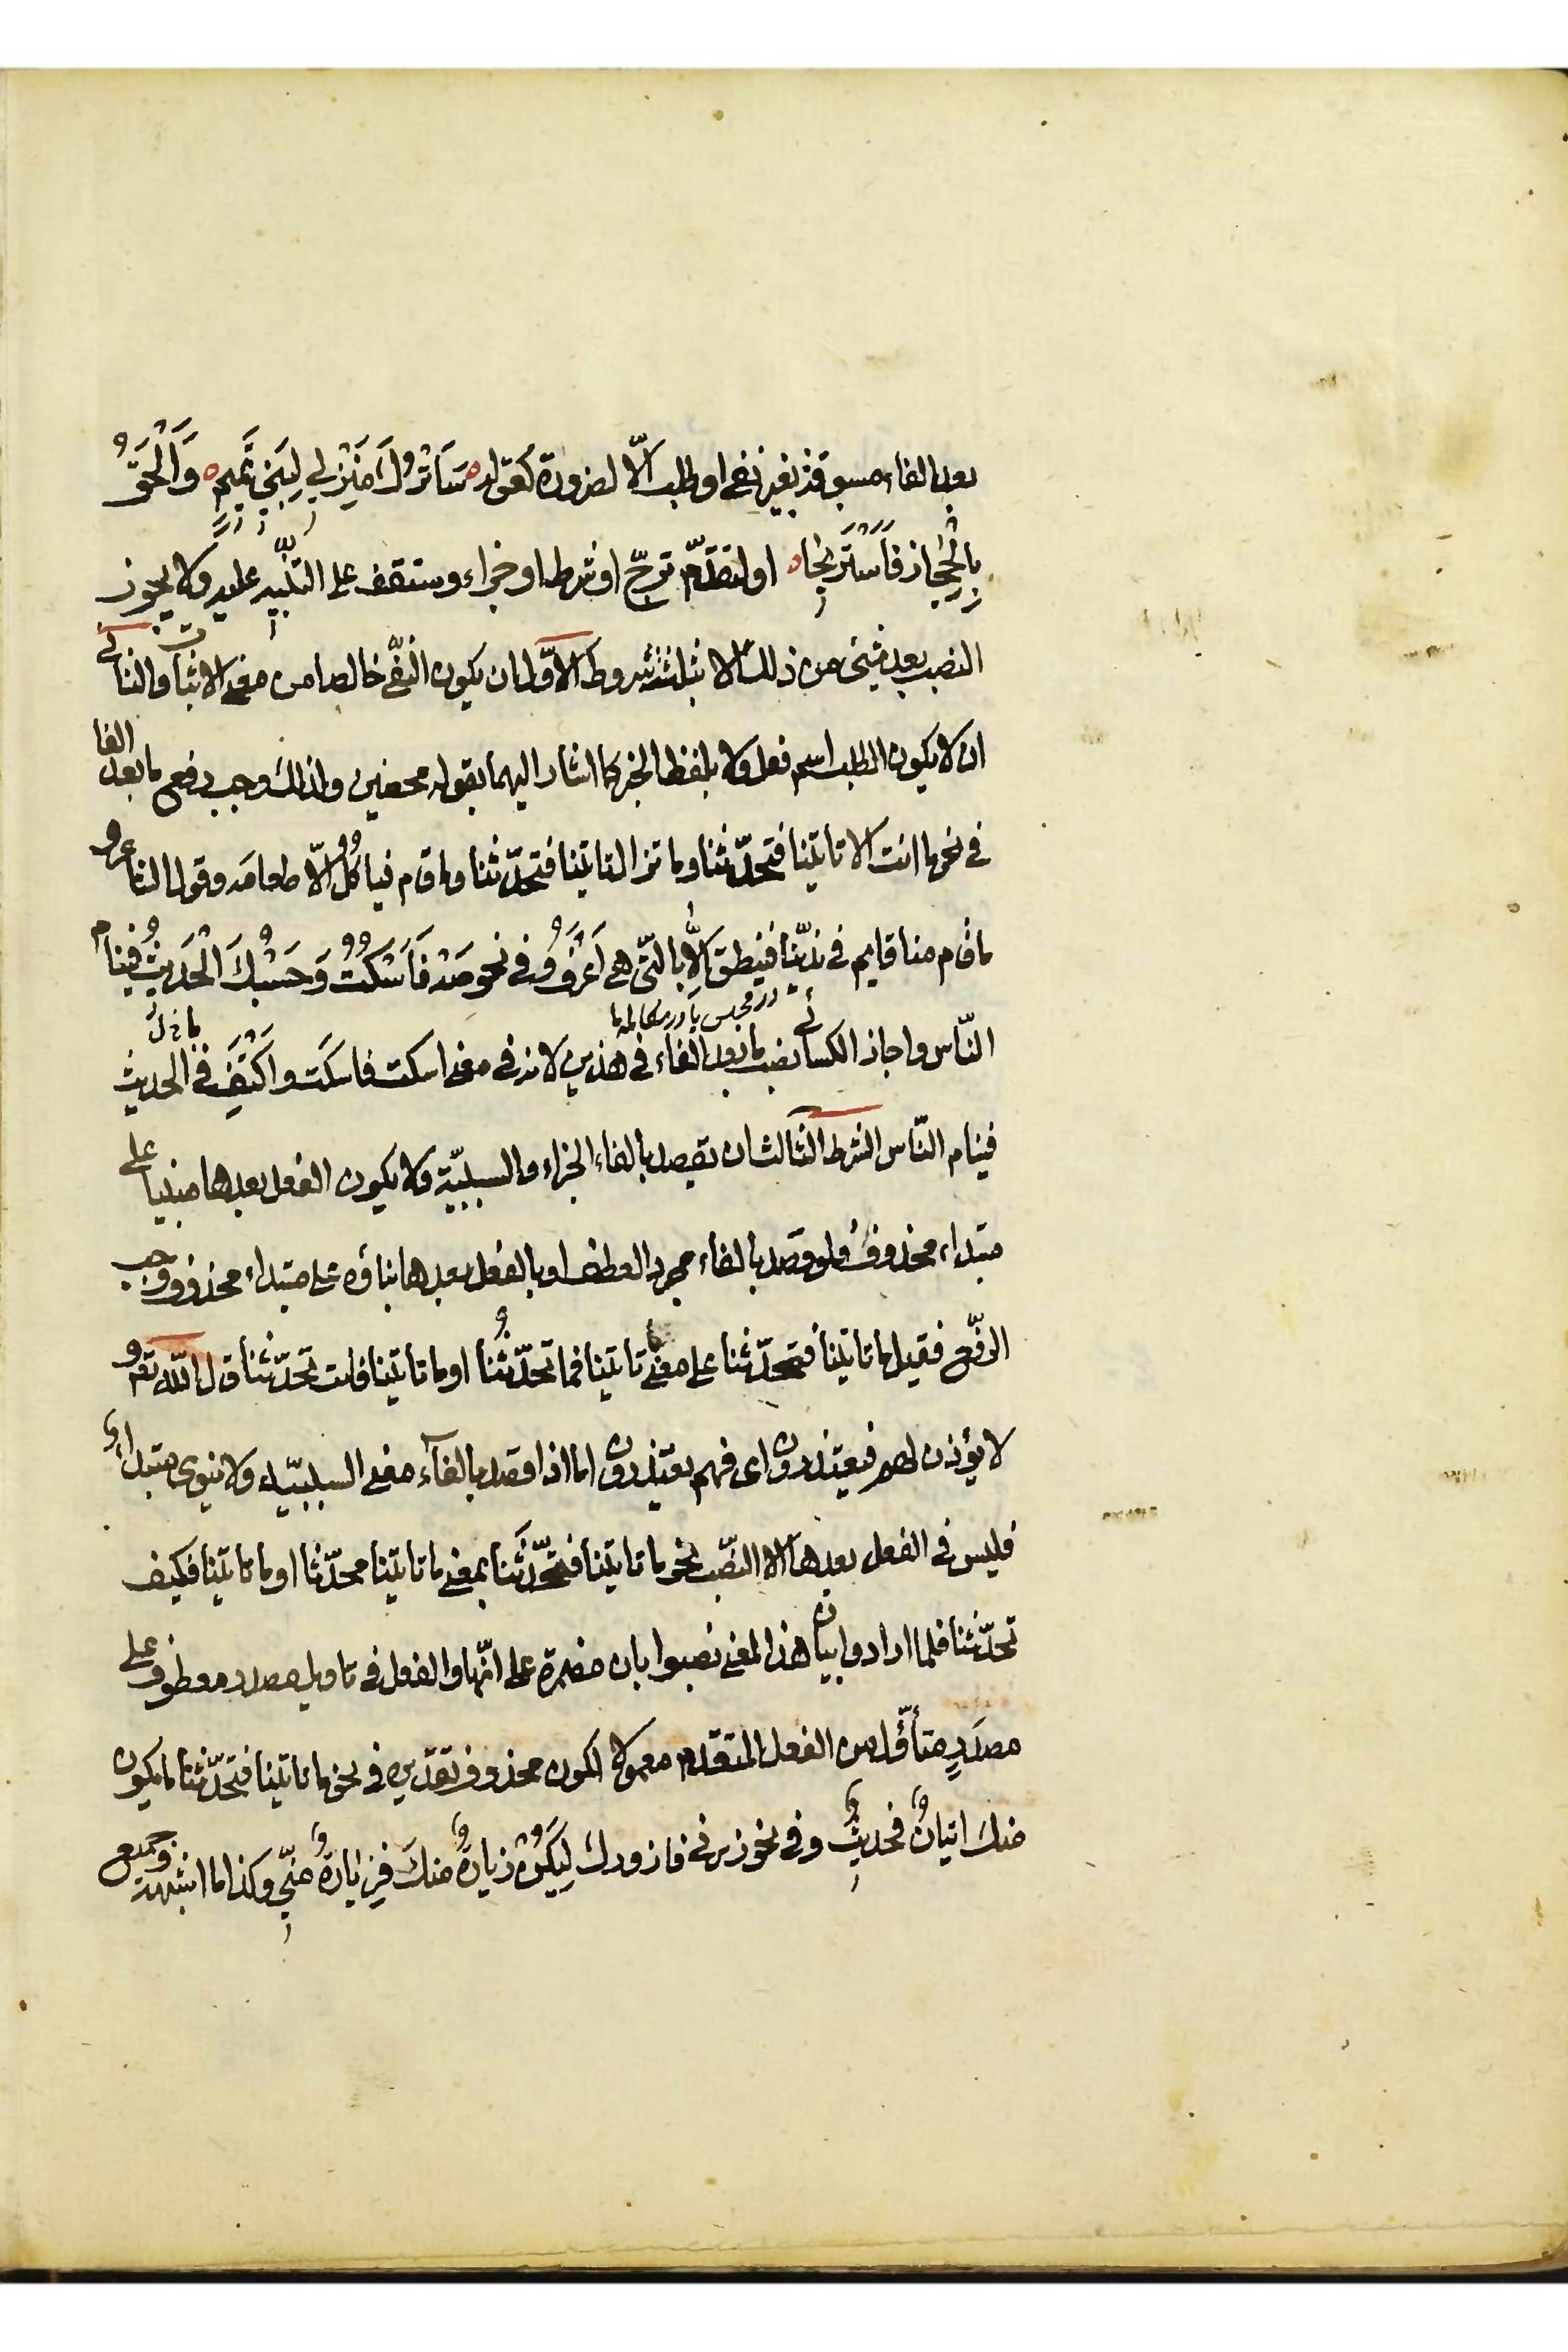 بعد الفاء مسبوقة بغير نفى او طلب الّا لضرورة كقوله سَاَتْرُكُ مَنْزِلي لِبَنِي تَمِيمٍ وَاَلْحَقُ
بِالْحِجٰاز فَاَسْتَرِيحٰا او لتقدّم ترجّ او شرط او جزاء وستقف على التنبيه عليه ولا يجوز
النصب بعد شيئ من ذلك الا بثلثة شروط الاوّل ان يكون النفّى خالصا من معنى الاثبات والثانى
ان لا يكون الطلب اسم فعل ولا بلفظ الخبر كما اشار اليهما بقوله محضين ولذلك وجب رفع ما بعد الفا
فى نحو ما انت الا تاتينا فتحدّثنا وما تزال تاتينا فتحدّثنا وما قام فياكلُ الّا طعامه وقول الشاعر
ما قام منا قايم فى نديّنا فينطق الّا بالتّى هى اَعْرَفُ وفى نحو صَهْ فَاَسْكُتُ وَحَسْبُكَ الْحَدِيثُ فينامُ
در مجلس يا در مكالمه ما
النّاس واجاز الكسائى نصب ما بعد الفاء فى هذين لانه فى معنى اسكت فاسكَت واكْتَفِ فى الحديث
فينام النّاس الشرط الثالث ان يقصد بالفاء الجزاء والسببيّة ولا يكون الفعل بعدها مبنيا على
مبتداء محذوف ولو قصد بالفاء مجرد العطف او بالفعل بعدها بناؤه على مبتداء محذوف وجب
الرفّع فقيل ما تاتينا فتحدّثنا على معنى ما تاتينا فما تحدّثُنا او ما تاتينا فانت تحدّثنا قال اللّه تعه و
لا يؤذن لهم فيعتذرون اى فهم يعتذرون اما اذا قصد بالفاء معنى السببيّه ولا ينوى مبتداء
فليس فى الفعل بعدها الا النصّب نحو ما تاتينا فتحدّثَنا بمعنى ما تاتينا محدّثا او ما تاتينا فكيف
تحدّثنا فلما ارادوا بيان هذا المعنى نصبوا بان مضمرة على انّها والفعل فى تاويل مصدر معطوف على
مصدَرٍ متأوّل من الفعل المتقدم معمولا لكون محذوف تقديره فى نحو ما تاتينا فتحدّثنا ما يكون
منك اتيانٌ فحديثٌ وفى نحو زرنى فازورك لِيَكُنْ زيارةٌ منكَ فزِيٰارةٌ منّي وكذا ما اشبهه وجميع